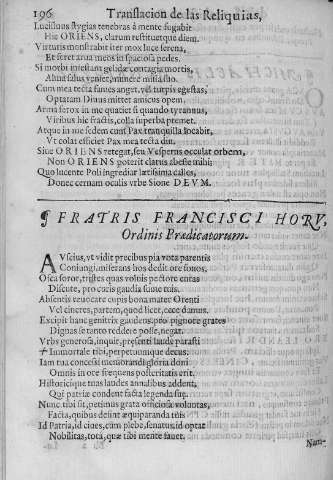 196 Translacion de las Reliquias,
Luctificas stygias tenebras à mente fugabit
Hic ORIENS, clarum restituetque diem.
Virtutis monstrabit iter mox luce serena,
Et feret arua meos in spaciosa pedes.
Si morbi infestam gelida contagia mortis,
Alma salus veniet, munere missa suo.
Cum mea tecta fames anget, vel turpis egestas,
Optatam Diuus mittet amicus opem.
Arma ferox in me quatiet si quando tyrannus,
Viribus hic fractis, colla superba premet.
Atque in sede cum Pax tranquilla locabit,
Vt colat efficiet Pax mea tecta diu.
Siue ORIENS reteget, seu Vesperus occulat orbem,
Non ORIENS poterit clarus abesse mihi;
Quo lucente Poli ingrediar lætissima calles,
Donec cernam oculis vrbe Sione DEVM.
¶ FRATRIS FRANCISCI HORV,
Ordinis Prædicatorum.
AVscius, vt vidit precibus pia vota parentis
Coniangi, miserans hos dedit ore sonos,
Osca soror, tristes quas voluis pectore curas
Discute, pro curis gaudia sume tuis.
Absentis reuocare cupis bona matec Orenti
Vel cineres, partem, quod licet, ecce damus.
Excipit hunc genitrix gaudens, pro pignore grates
Dignas se tanto reddere posse, negat.
Vrbs generosa, inquit, præsenti laude parasti
Immortale tibi, perpetuumque decus.
Iam tua concessi memorandi gloria doni
Omnis in ore frequens posteritatis erit.
Historicique tuas laudes annalibus addent,
Qui patriæ condent facta legenda suę.
Nunc tibi sit, petimus grata officiosa voluntas,
Facta, quibus desint æquiparanda tuis
Id Patria, id ciues, cum plebe, senatus, id optat
Nobilitas, tota, quæ tibi mente fauet.
Nam-